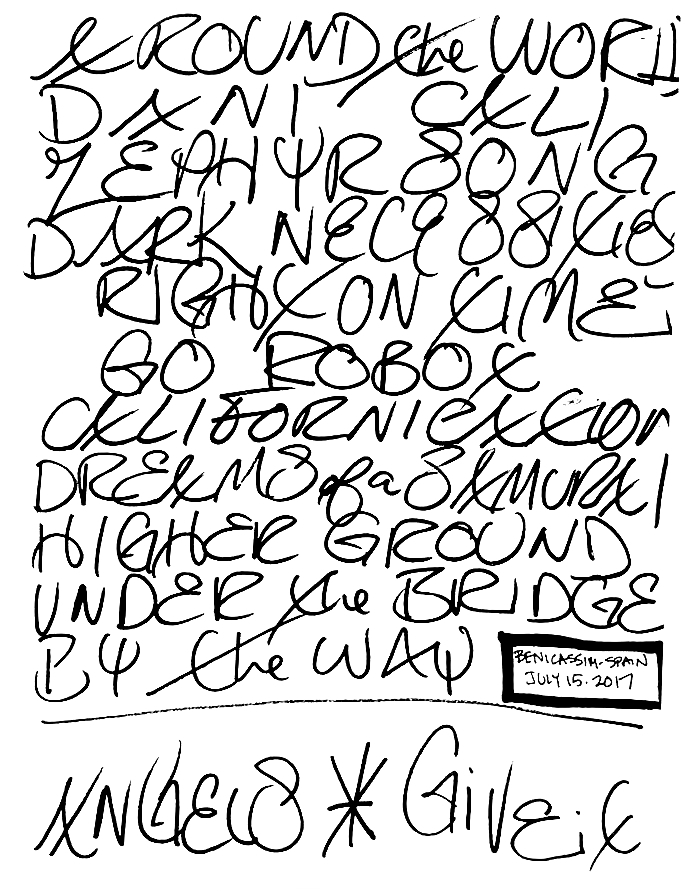 AROUND the WORLD
DANI CALI
ZEPHYR SONG
DARK NECESSITIES
RIGHT ON TIME
GO ROBOT
CALIFORNICATION
DREAMS of a SAMURAI
HIGHER GROUND
UNDER the BRIDGE
BY the WAY
BENICASSIM-SPAIN
JULY 15.2017
ANGELS * GiVEiT